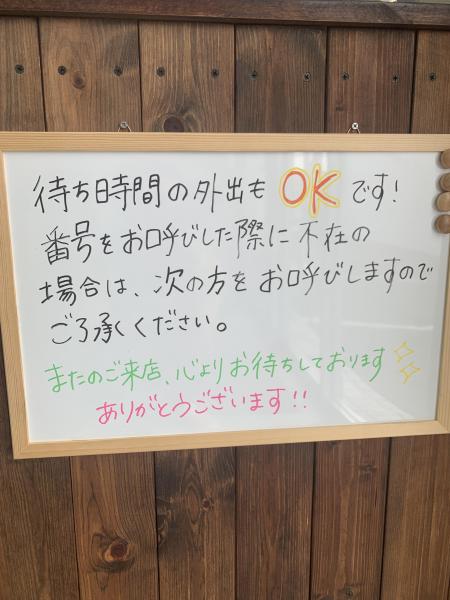 待ち時間の外出も OK です!
番号をお呼びした際に不在の
場合は、次の方をお呼びしますので
ご了承ください。
またのご来店、心よりお待ちしております
ありがとうございます!!